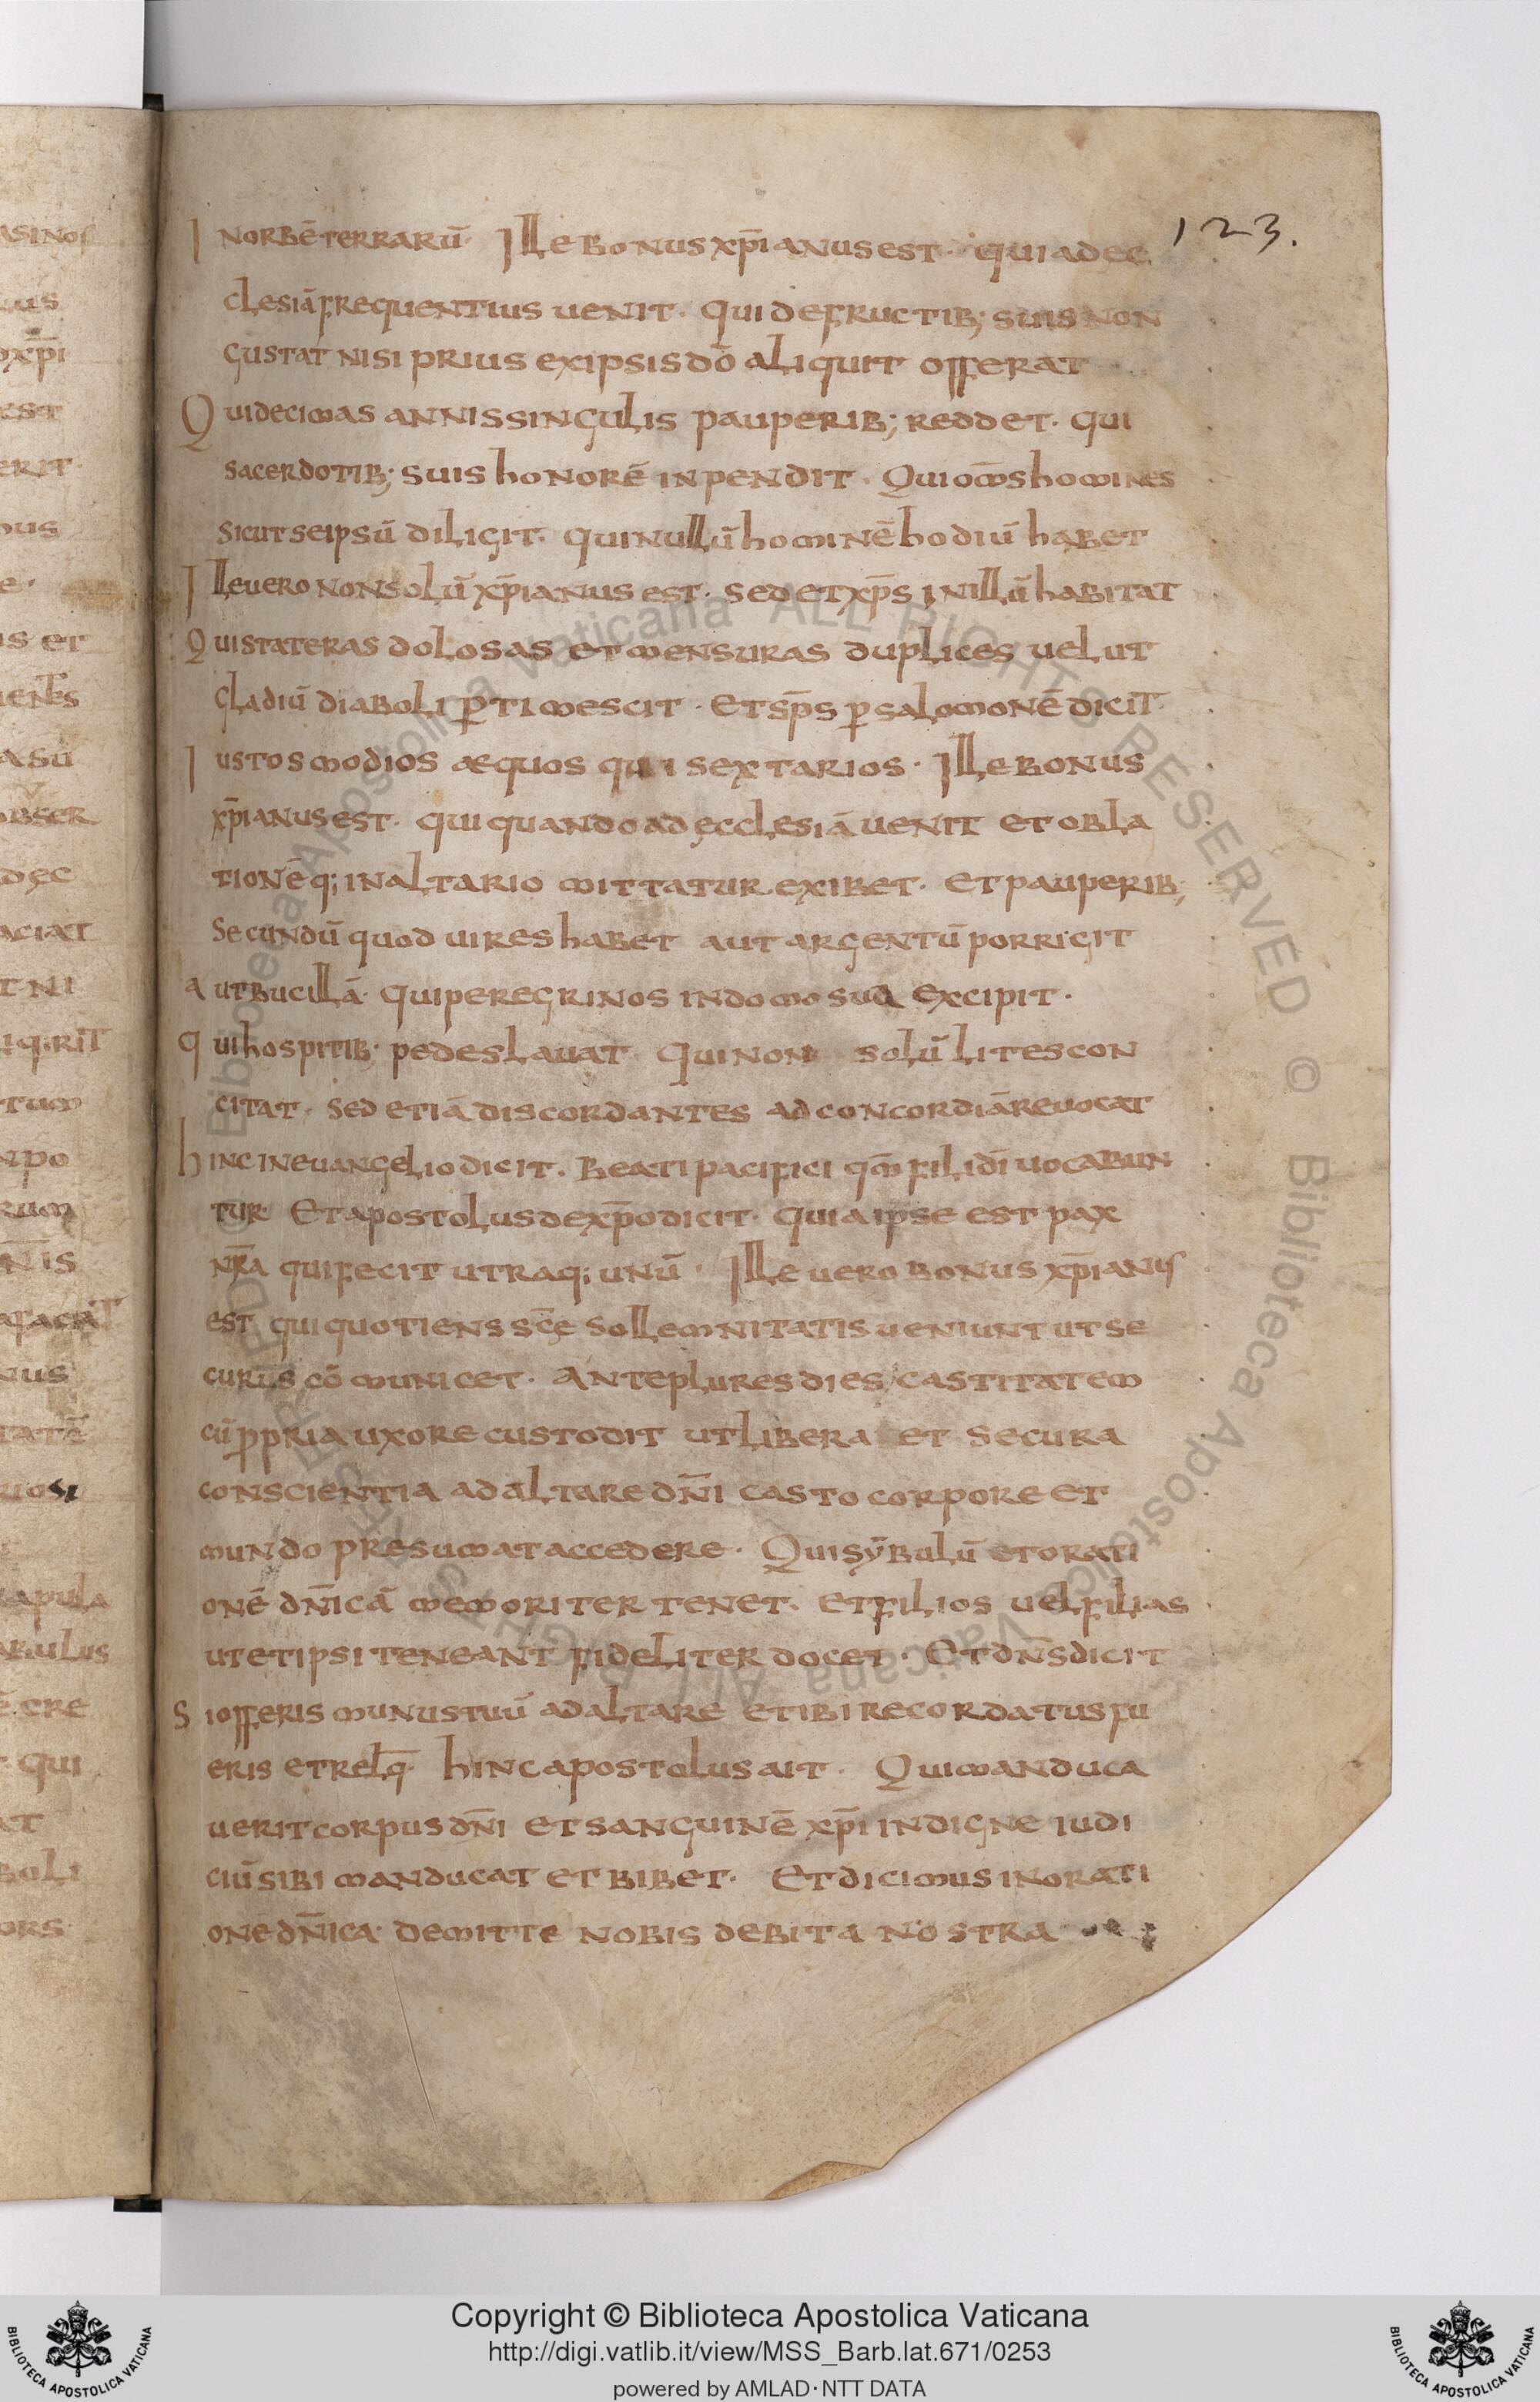 123.
IN ORBĒ TERRARŪ· ILLE BONUS XP̄IANUS EST· QUI AD EC
CLESIĀ FREQUENTIUS UENIT· QUI DE FRUCTIB; SUIS NON
GUSTAT NISI PRIUS EX IPSIS DŌ ALIQUIT OFFERAT
QUI DECIMAS ANNIS SINGULIS PAUPERIB; REDDET· QUI
SACERDOTIB; SUIS HONORĒ INPENDIT· QUI OM̄S HOMINES
SICUT SEIPSŪ DILIGIT· QUI NULLŪ HOMINĒ HODIŪ HABET
ILLE UERO NON SOLŪ XP̄IANUS EST· SED ET XP̄S IN ILLŪ HABITAT
QUI STATERAS DOLOSAS ET MENSURAS DUPLICES UELUT
GLADIŪ DIABOLI P̲TIMESCIT· ET SP̄S P̲ SALOMONĒ DICIT·
IUSTOS MODIOS ÆQUOS QUI SEXTARIOS· ILLE BONUS
XP̄IANUS EST· QUI QUANDO AD ECCLESIĀ UENIT ET OBLA
TIONĒ Q; IN ALTARIO MITTATUR EXIBET· ET PAUPERIB;
SECUNDŪ QUOD UIRES HABET AUT ARGENTŪ PORRIGIT
AUT BUCILLĀ· QUI PEREGRINOS IN DOMO SUA EXCIPIT·
QUI HOSPITIB· PEDES LAUAT QUI NON SOLŪ LITES CON
CITAT· SED ETIĀ DISCORDANTES AD CONCORDIĀ REUOCAT
HINC IN EUANGELIO DICIT· BEATI PACIFICI QM̄ FILI DĪ UOCABUN
TUR· ET APOSTOLUS DE XP̄O DICIT· QUIA IPSE EST PAX
NR̄A QUI FECIT UTRAQ; UNŪ· ILLE UERO BONUS XP̄IANUS
EST QUI QUOTIENS SC̄E SOLLEMNITATIS UENIUNT UT SE
CURUS CŌMUNICET· ANTE PLURES DIES CASTITATEM
CŪ PPRIA UXORE CUSTODIT UT LIBERA ET SECURA
CONSCIENTIA AD ALTARE DN̄I CASTO CORPORE ET
MUNDO PRESUMAT ACCEDERE· QUI SȲBULŪ ET ORATI
ONĒ DN̄ICĀ MEMORITER TENET· ET FILIOS UEL FILIAS
UT ET IPSI TENEANT FIDELITER DOCET· ET DN̄S DICIT
SI OFFERIS MUNUS TUŪ AD ALTARE ET IBI RECORDATUS FU
ERIS ET RELQ̄· HINC APOSTOLUS AIT· QUI MANDUCA
UERIT CORPUS DN̄I ET SANGUINĒ XP̄I INDIGNE IUDI
CIŪ SIBI MANDUCAT ET BIBET· ET DICIMUS IN ORATI
ONE DN̄ICA· DEMITTE NOBIS DEBITA NOSTRA
Copyright © Biblioteca Apostolica Vaticana
http://digi.vatlib.it/view/MSS_Barb.lat.671/0253
powered by AMLAD·NTT DATA